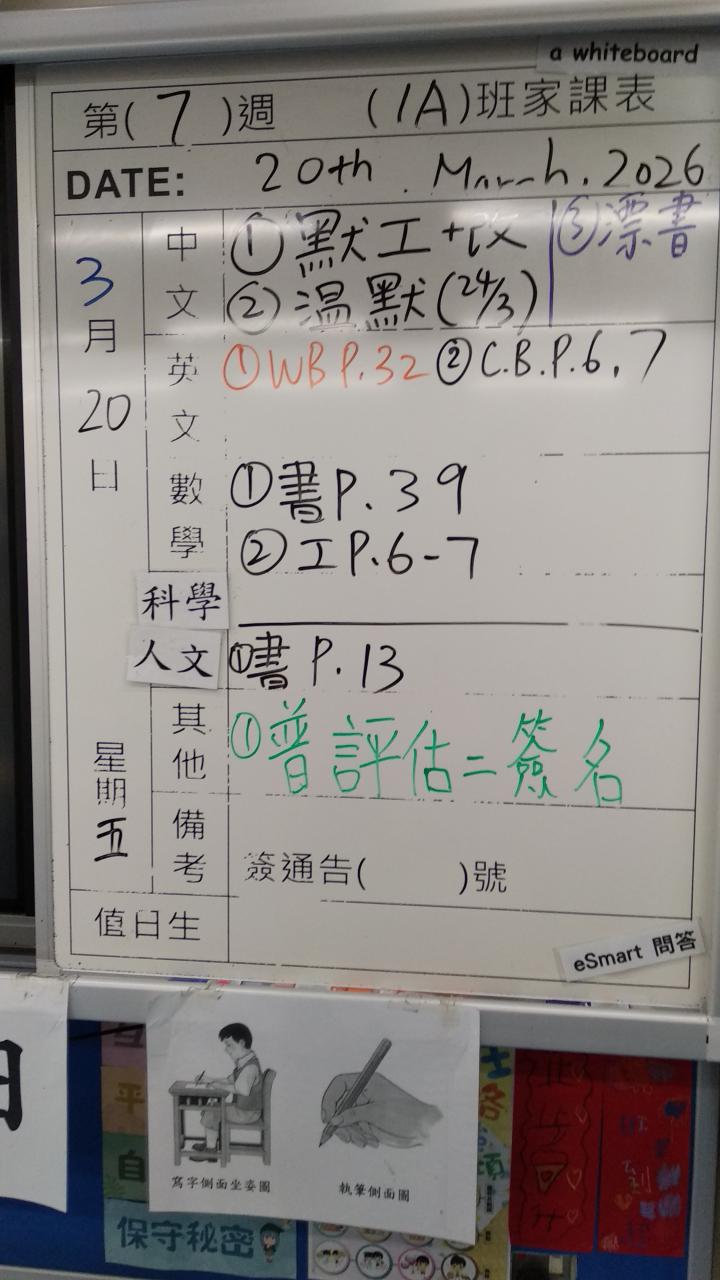 a whiteboard
第( 7 )週 (1A)班家課表
DATE: 20th. March. 2026
3月20日 星期五
中文 ①默工+改 ③漂書
②溫默(24/3)
英文 ①WB P.32 ②C.B.P.6,7
數學 ①書P.39
②工P.6-7
科學
人文 ①書 P.13
其他 ①普評估二簽名
備考 簽通告( )號
值日生
eSmart 問答
寫字側面坐姿圖 執筆側面圖
保守秘密